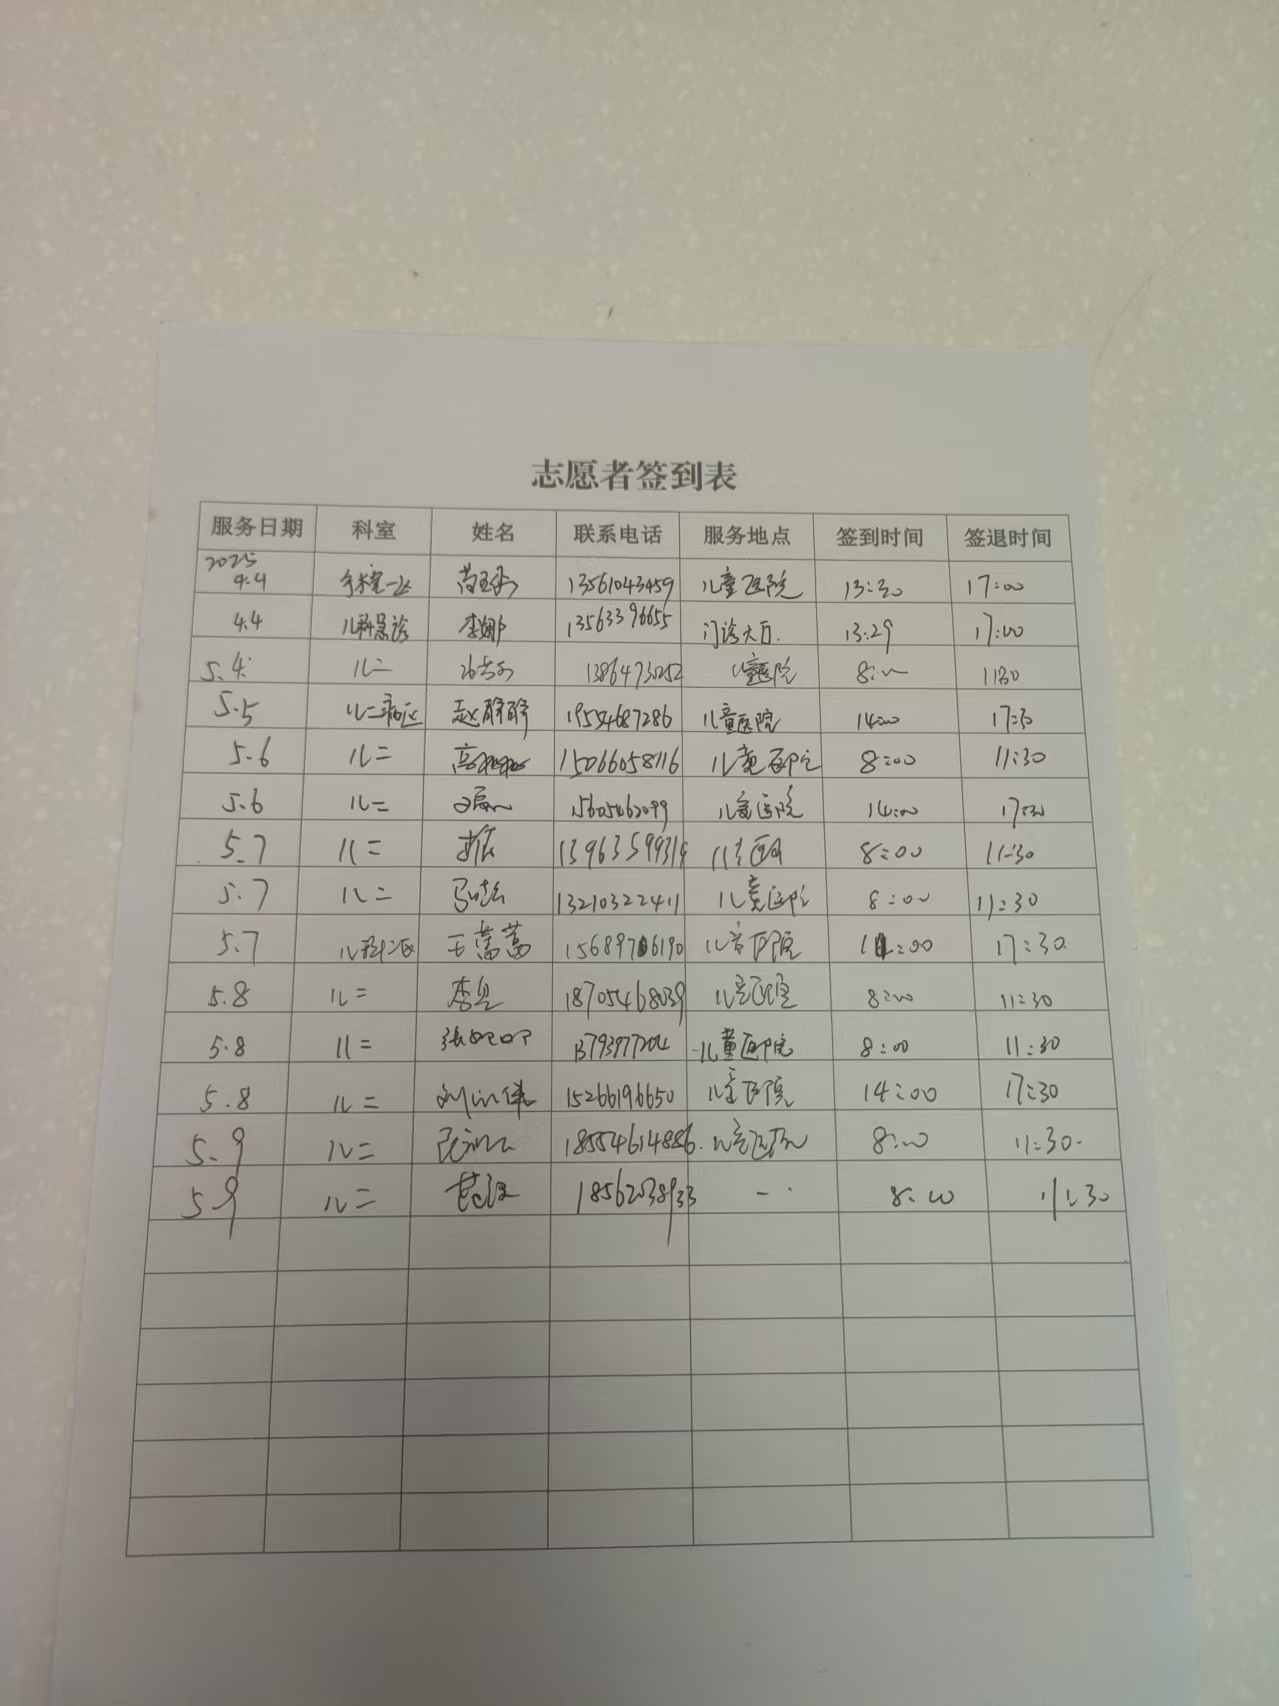 志愿者签到表
服务日期 科室 姓名 联系电话 服务地点 签到时间 签退时间
2025
4.4 手术室一区 13561043459 儿童医院 13:30 17:00
4.4 儿科急诊 李娜 13563396655 门诊大厅. 13:29 17:00
5.4 儿二 儿童医院 8:00 11:30
5.5 儿二病区 赵静静 19554687286 儿童医院 14:00 17:30
5.6 儿二 15066058116 儿童医院 8:00 11:30
5.6 儿二 15605462099 儿童医院 14:00 17:30
5.7 儿二 8:00 11:30
5.7 儿二 13210322411 儿童医院 8:00 11:30
5.7 儿科二区 王蒿蒿 15689706190 儿童医院 :00 17:30
5.8 儿二 18705468039 8:00 11:30
5.8 儿二 儿童医院 8:00 11:30
5.8 儿二 15266196650 儿童医院 14:00 17:30
5.9 儿二 18554614886. 儿童医院 8:00 11:30.
5.9 儿二 18562038933 8:00 11:30